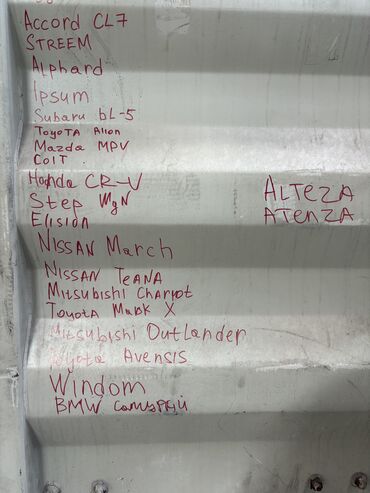 Accord CL7
STREEM
Alphard
Ipsum
Subaru bL-5
TOYOTA Allon
Mazda MPV
COLT
Honda CR-V
Step WgN
Elision
ALTEZA
ATENZA
NISSAN March
NISSAN TEANA
Mitsubishi Chariot
Toyota Mark X
Mitsubishi Outlander
Toyota Avensis
Windom
BMW